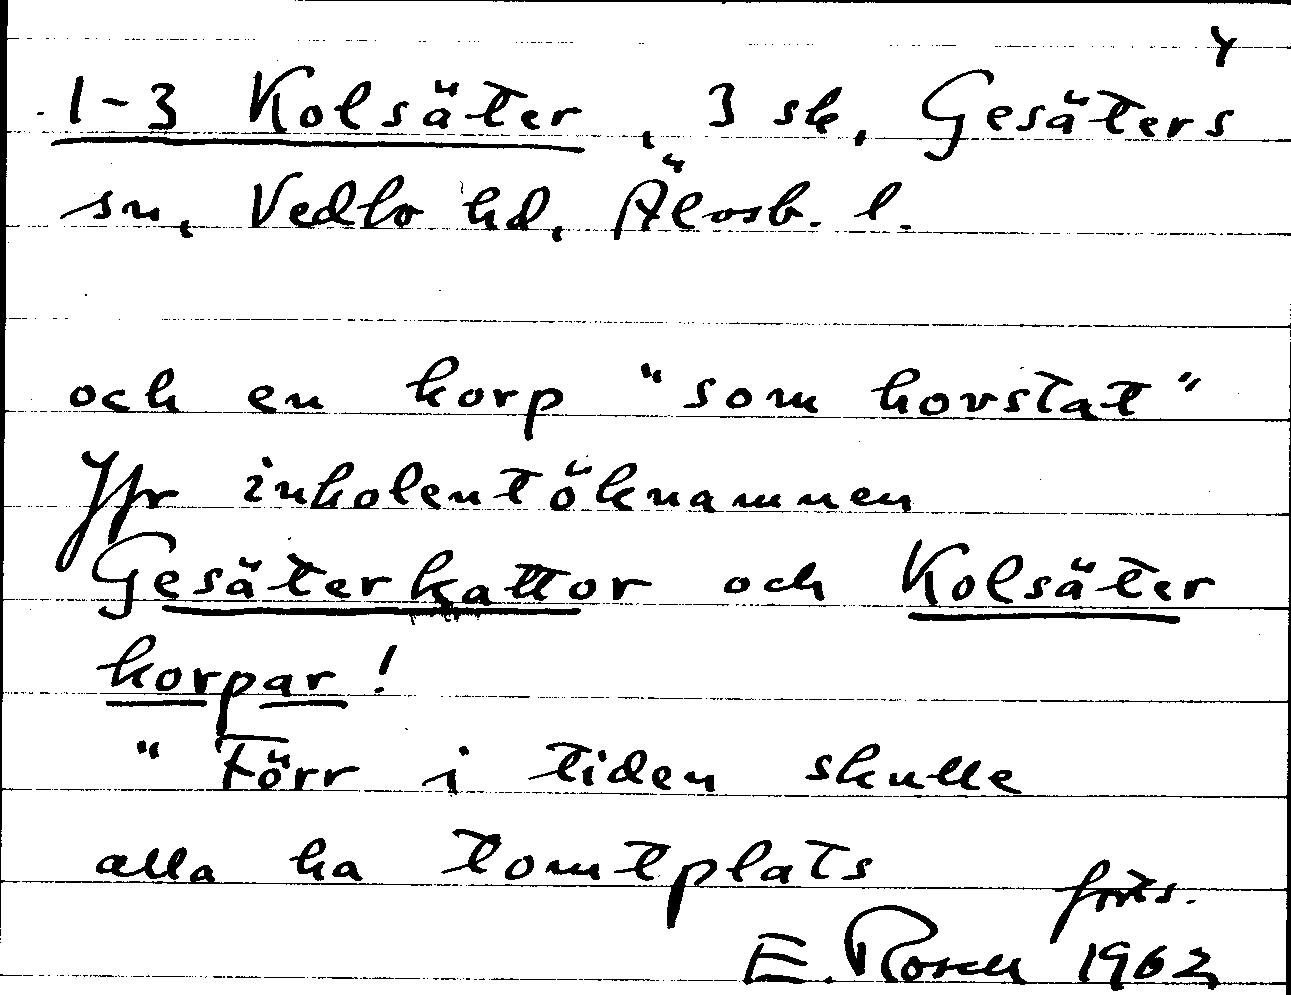 4
1-3 Kolsäter, 3 sk, Gesäters
sn, Vedbo hd, Älvsb. l.
och en korp "som hovstat"
Jfr inkolentöknamnen
Gesäterkattor och Kolsäter
korpar!
"Förr i tiden skulle
alla ha tomtplats
forts.
E. Rosell 1962